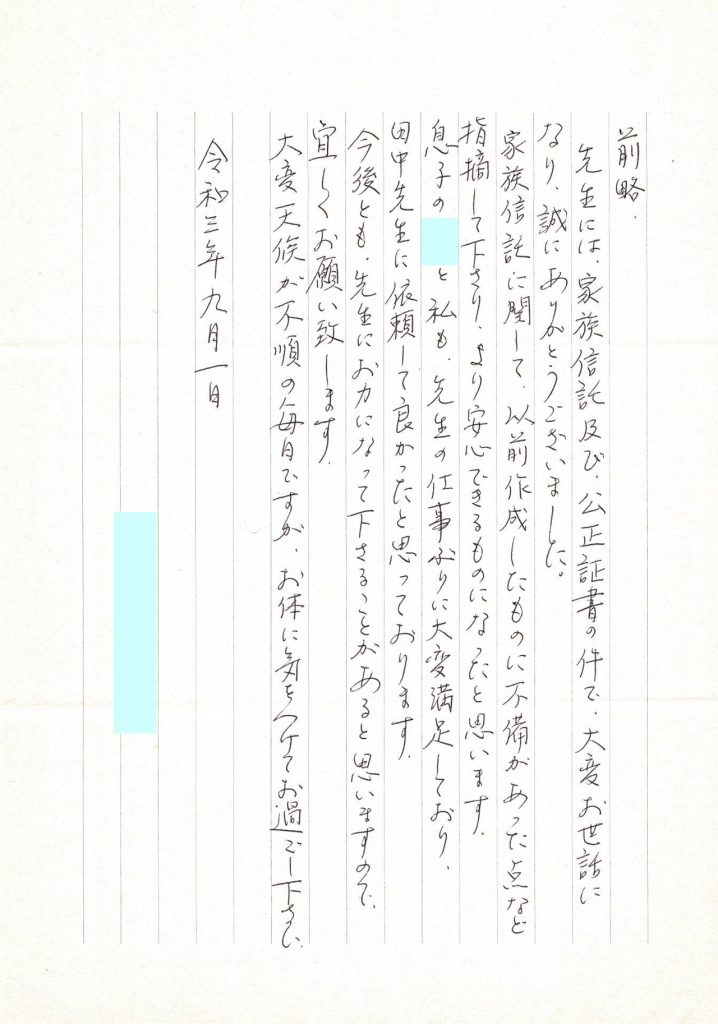 前略.
先生には、家族信託及び、公正証書の件で、大変お世話に
なり、誠にありがとうございました。
家族信託に関して、以前作成したものに不備があった点など
指摘して下さり、より安心できるものになったと思います.
息子の と私も、先生の仕事ぶりに大変満足しており、
田中先生に依頼して良かったと思っております.
今後とも、先生にお力になって下さることがあると思いますので、
宜しくお願い致します.
大変天候が不順の毎日ですが、お体に気をつけてお過ごし下さい
令和三年九月一日